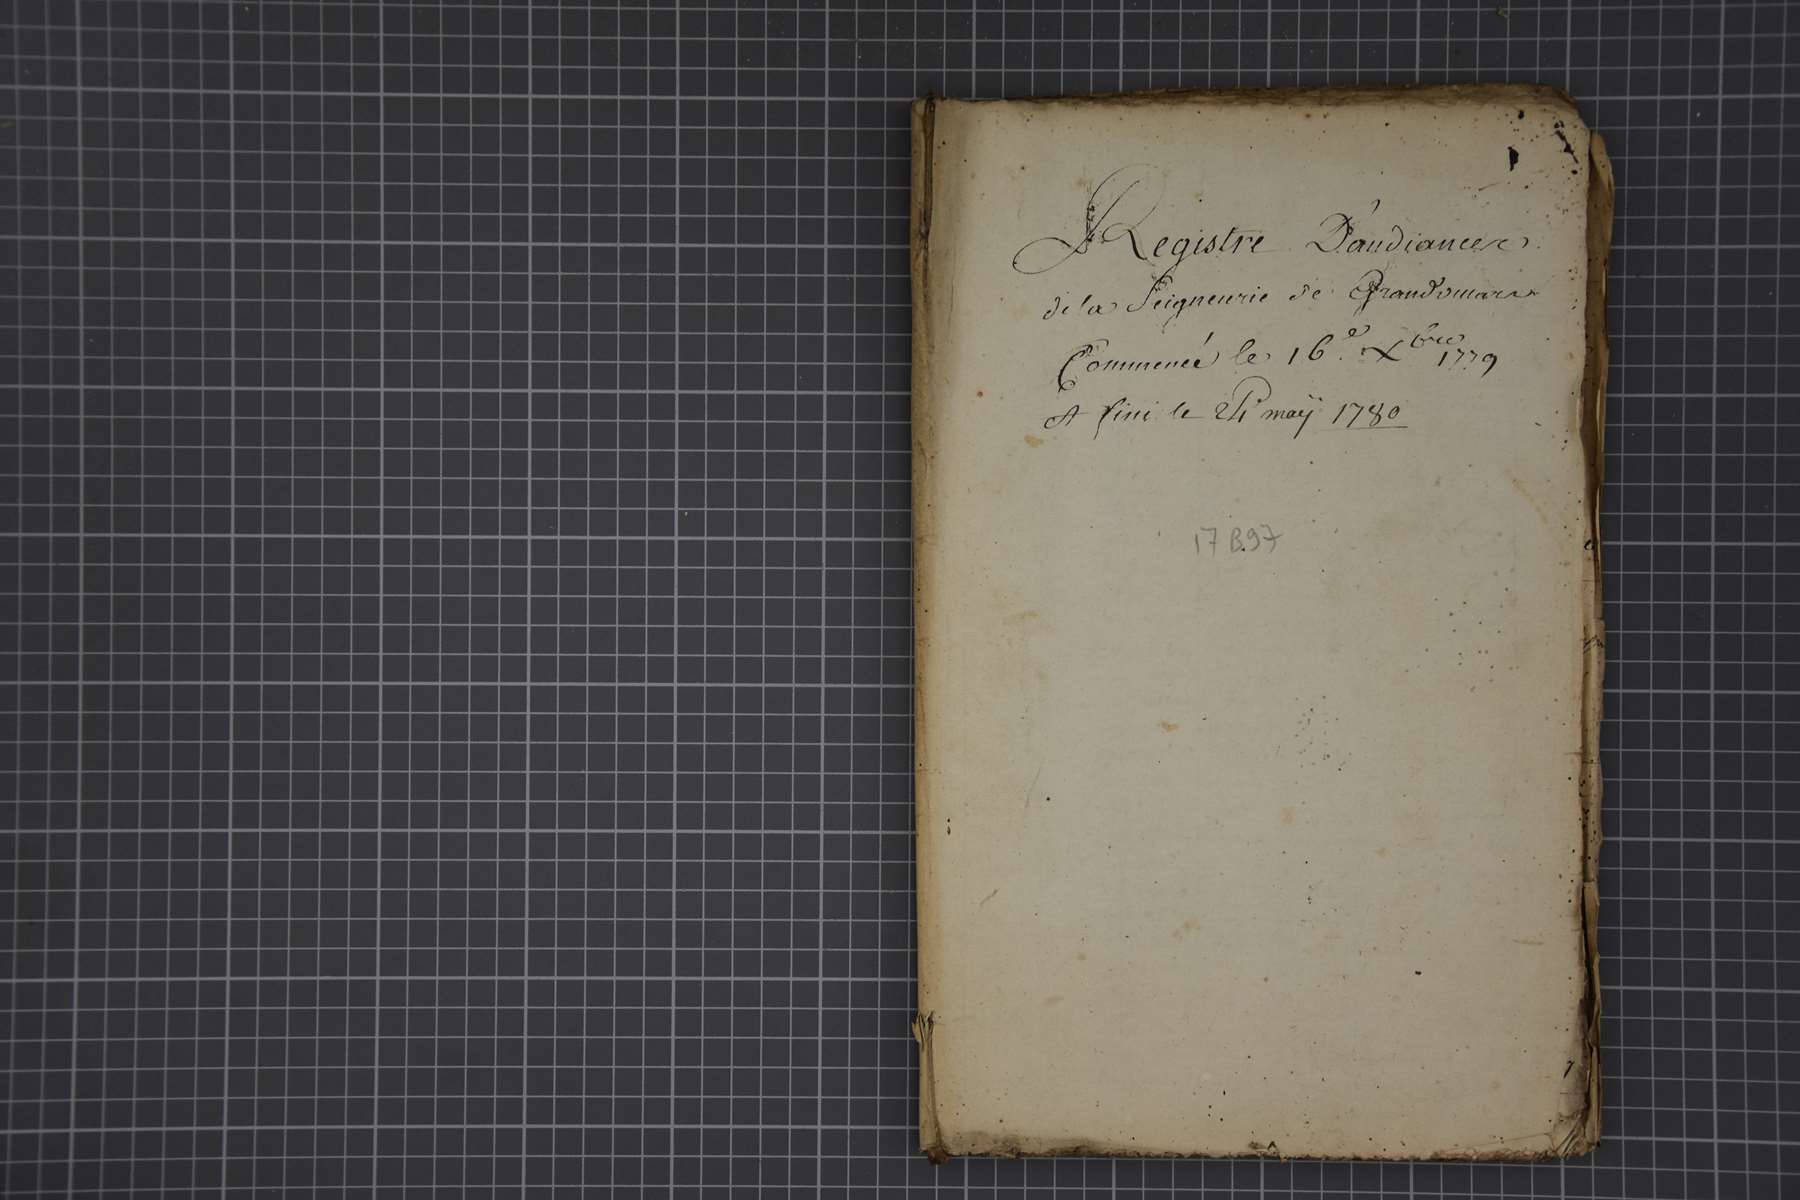 Registre D'audiance
de la Seigneurie de Grandsmars
Commencé le 16e Xbre 1779
et fini le 24 maÿ 1780
17 B97